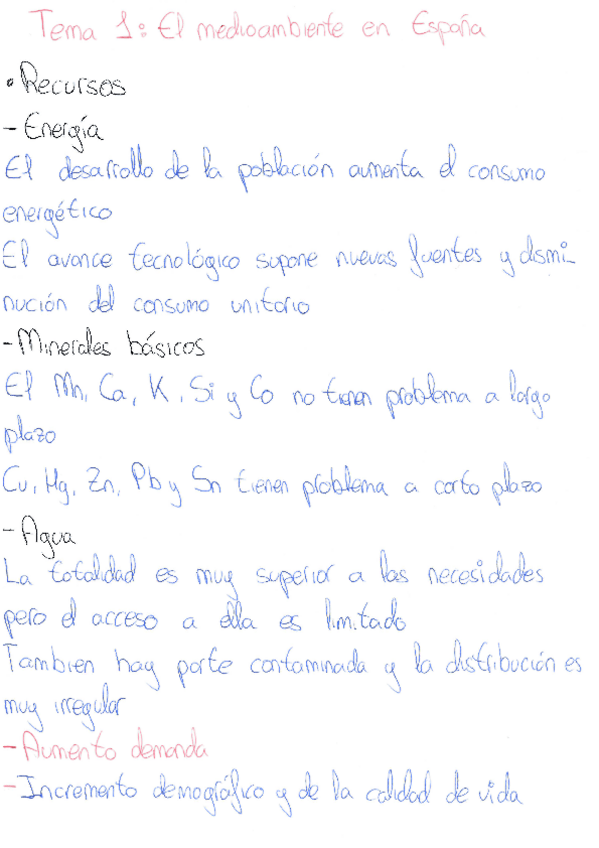 Tema 1: El medioambiente en España
• Recursos
- Energía
El desarrollo de la población aumenta el consumo
energético
El avance tecnológico supone nuevas fuentes y dismi-
nución del consumo unitario
- Minerales básicos
El Mn, Ca, K, Si y Co no tienen problema a largo
plazo
Cu, Hg, Zn, Pb y Sn tienen problema a corto plazo
- Agua
La totalidad es muy superior a las necesidades
pero el acceso a ella es limitado
Tambien hay parte contaminada y la distribución es
muy irregular
- Aumento demanda
- Incremento demográfico y de la calidad de vida